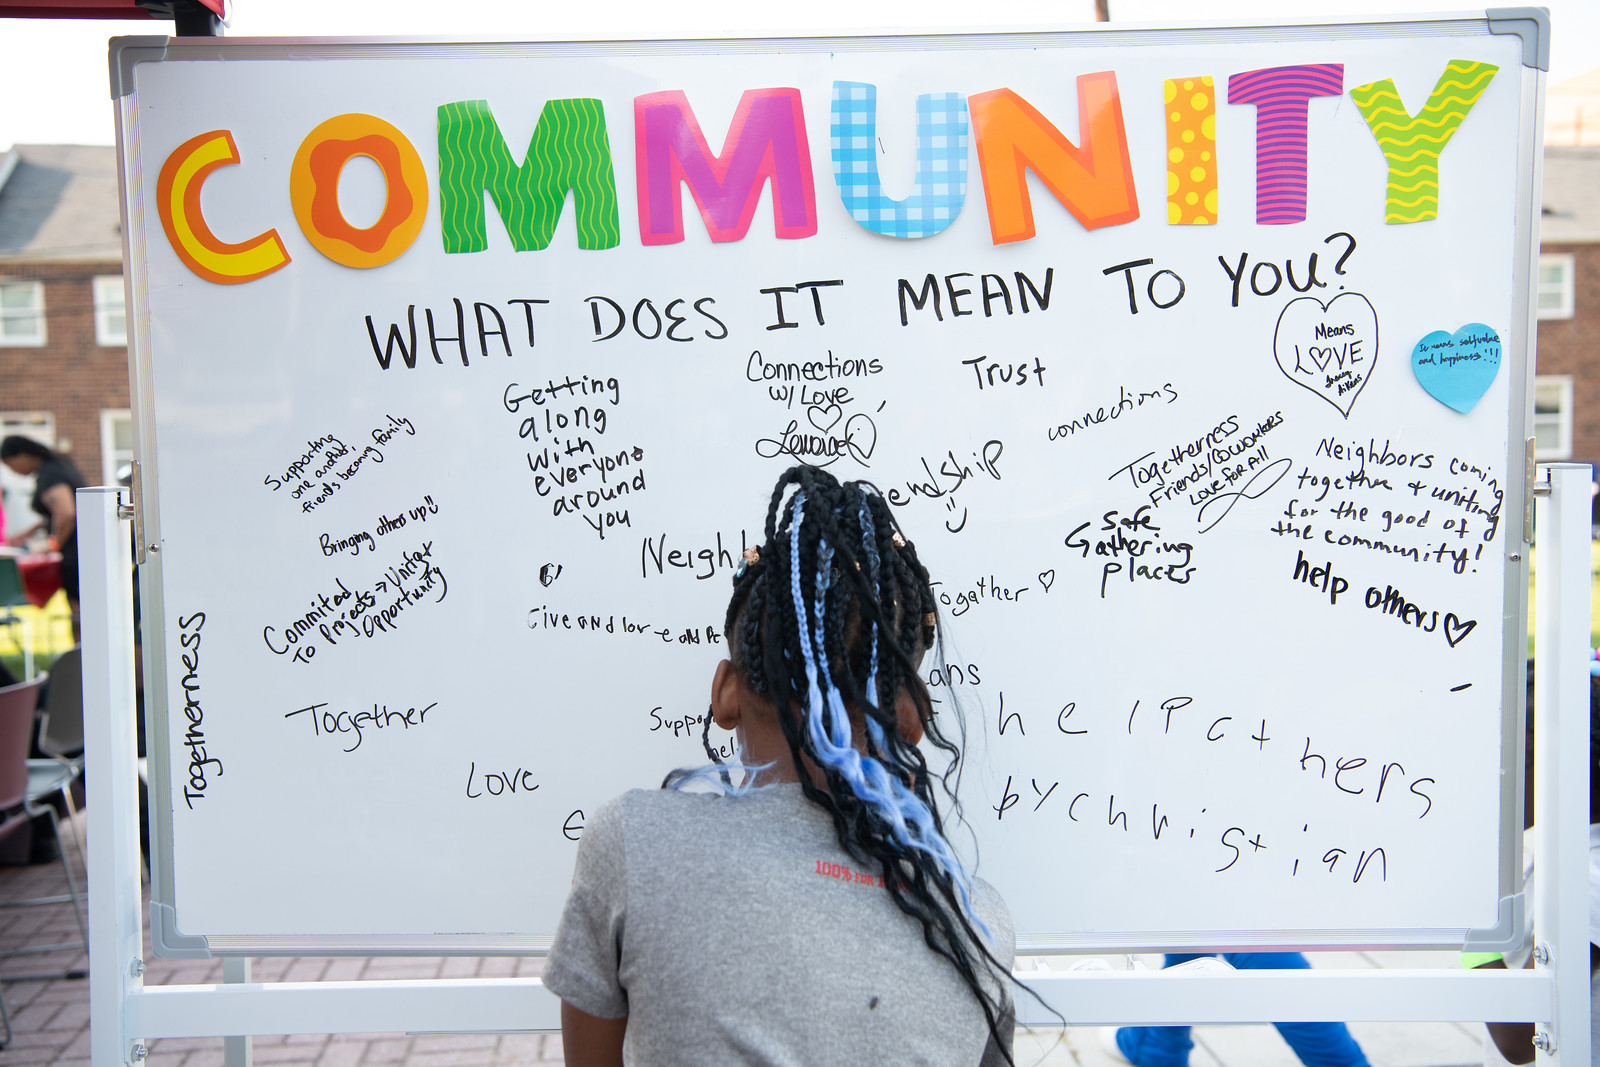 COMMUNITY
WHAT DOES IT MEAN TO YOU?
Means
LOVE
Aikens
It means selfvalue
and happiness!!!
Connections
w/ Love
Trust
connections
Getting
along
with
everyone
around
you
Supporting
one another
friends becoming family
Bringing others up!!
Commited
To Projects → Unity
Opportunity
Togetherness
Friends/Coworkers
Love for All
Neighbors coming
together + uniting
for the good of
the community!
endship
Safe
Gathering
places
help others
Neighb
Together
Give and love and
Togetherness
Together
Love
ans
Suppo
hel
help others
by Christian
100% FOR